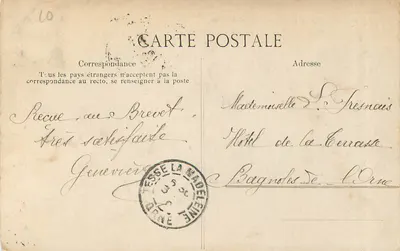 10
CARTE POSTALE
Correspondance
Tous les pays étrangers n'acceptent pas la
correspondance au recto, se renseigner à la poste
Reçue au Brevet
très satisfaite
Geneviève
Adresse
Mademoiselle S. Fresnais
Hôtel de la Terrasse
Bagnoles de l'Orne
TESSE LA MADELEINE
ORNE